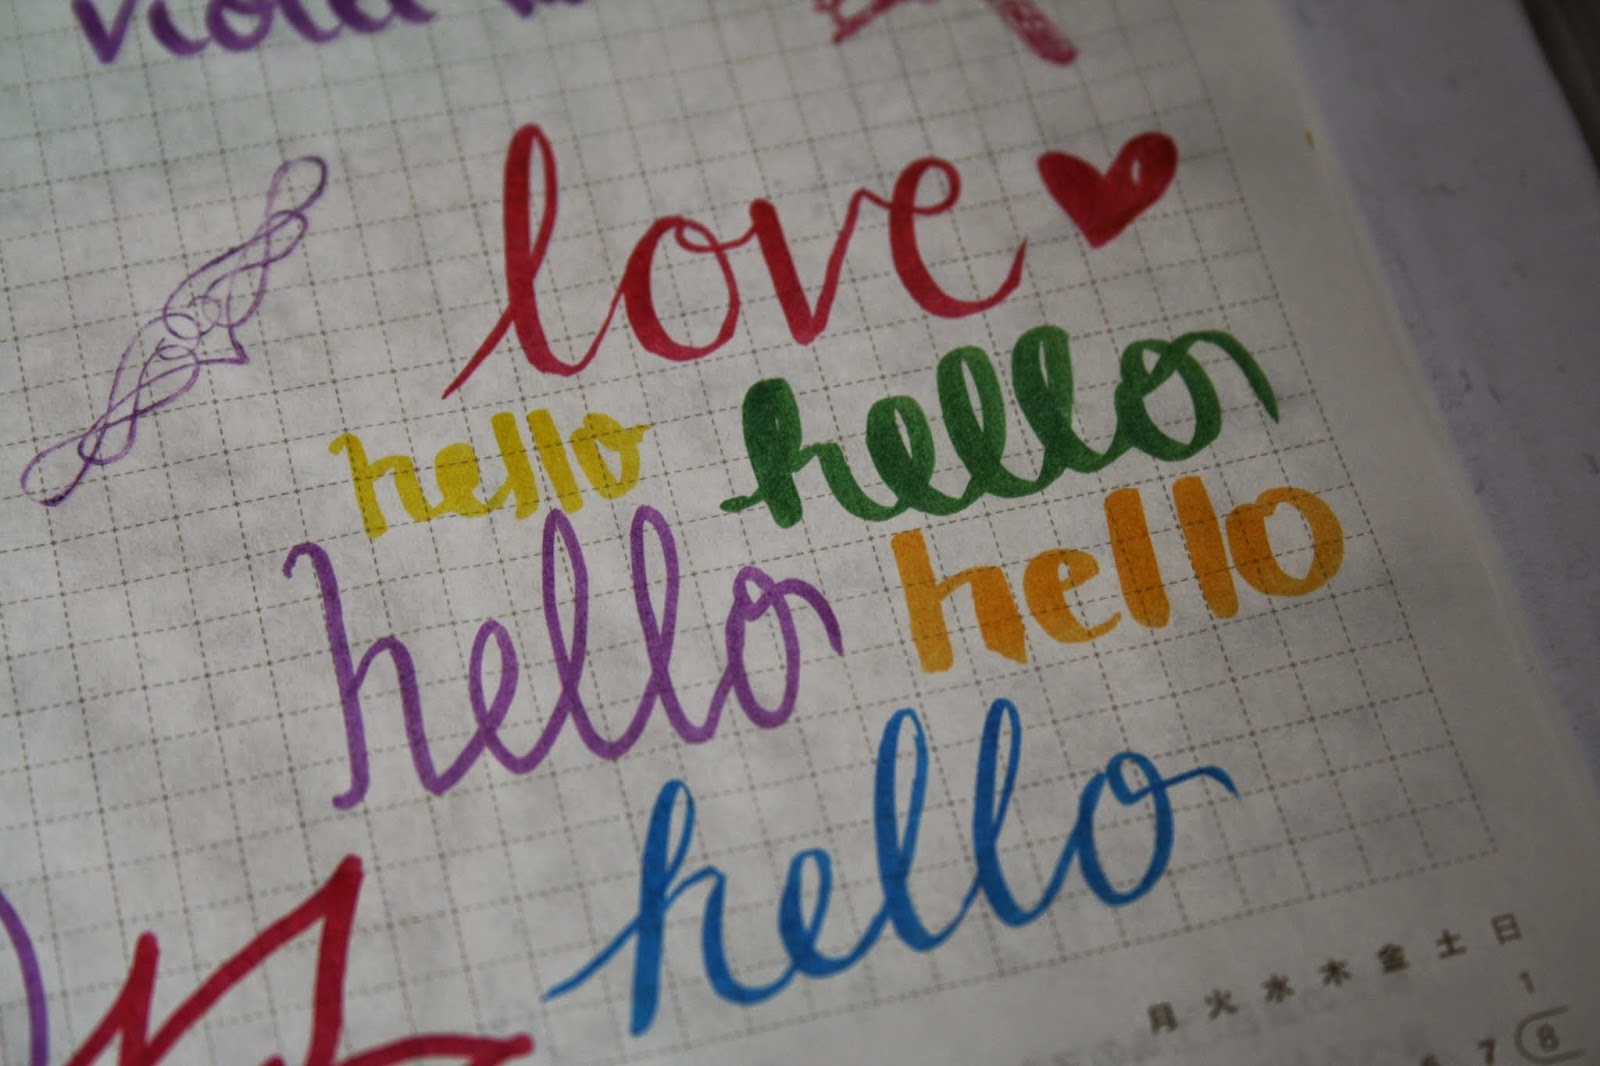 violet
love
hello hello
hello hello
hello
月 火 水 木 金 土 日
1
7 8